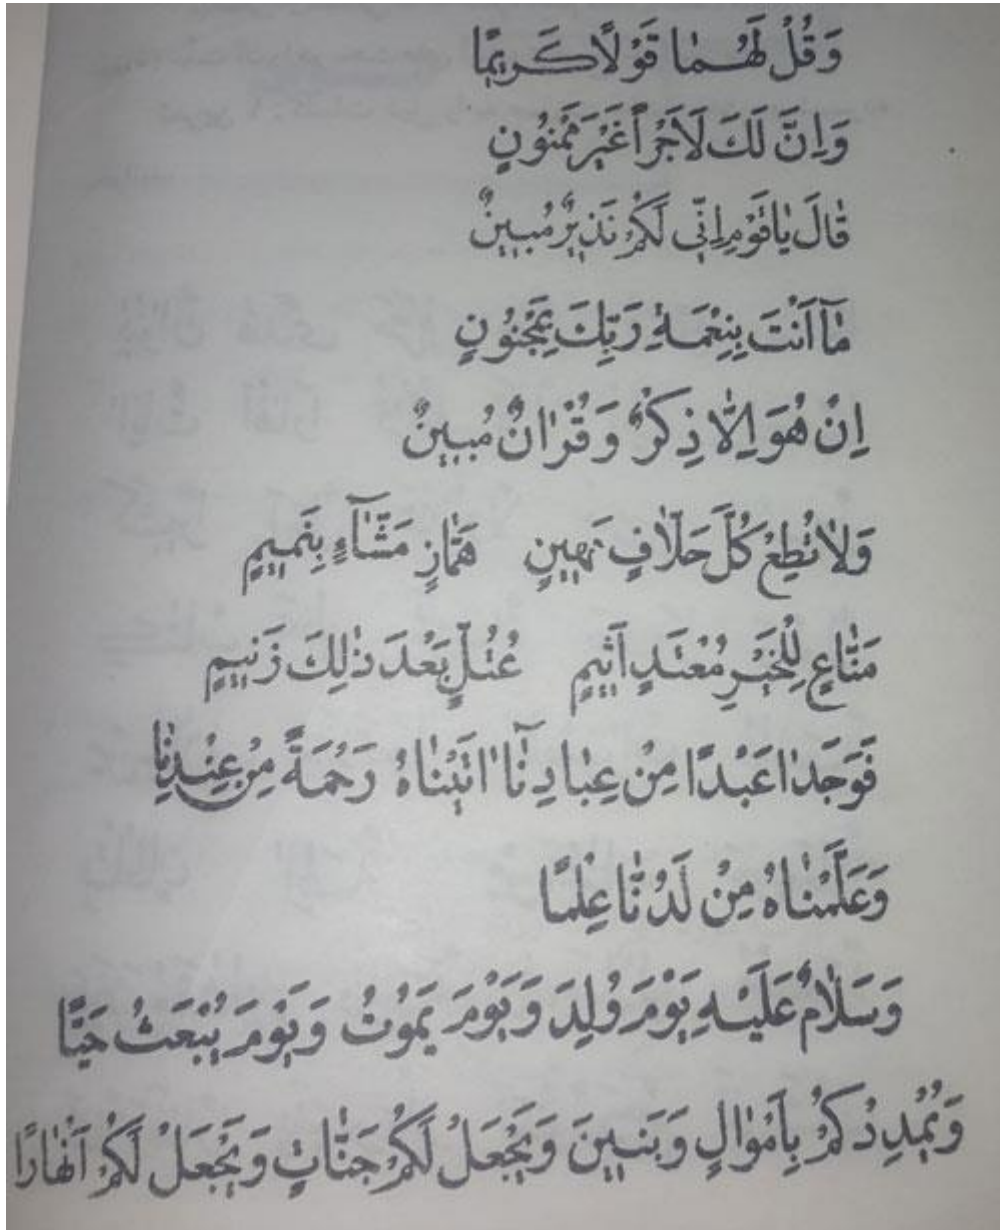 وَقُلْ لَهُمٰا قَوْلًا كَرِيمًا
وَاِنَّ لَكَ لَاَجْرًا غَيْرَ مَمْنُونٍ
قٰالَ يٰا قَوْمِ اِنّٖي لَكُمْ نَذِيرٌ مُبِينٌ
مٰٓا اَنْتَ بِنِعْمَةِ رَبِّكَ بِمَجْنُونٍ
اِنْ هُوَ اِلّٰا ذِكْرٌ وَ قُرْاٰنٌ مُبِينٌ
وَلٰا تُطِعْ كُلَّ حَلّٰافٍ مَهِينٍ هَمّٰازٍ مَشّٰٓاءٍ بِنَمِيمٍ
مَنّٰاعٍ لِلْخَيْرِ مُعْتَدٍ اَثِيمٍ عُتُلٍّ بَعْدَ ذٰلِكَ زَنِيمٍ
فَوَجَدٰا عَبْدًا مِنْ عِبٰادِنٰٓا اٰتَيْنٰاهُ رَحْمَةً مِنْ عِنْدِنٰا
وَعَلَّمْنٰاهُ مِنْ لَدُنّٰا عِلْمًا
وَسَلٰامٌ عَلَيْهِ يَوْمَ وُلِدَ وَيَوْمَ يَمُوتُ وَيَوْمَ يُبْعَثُ حَيًّا
وَيُمْدِدْكُمْ بِاَمْوٰالٍ وَبَنِينَ وَيَجْعَلْ لَكُمْ جَنّٰاتٍ وَيَجْعَلْ لَكُمْ اَنْهٰارًا